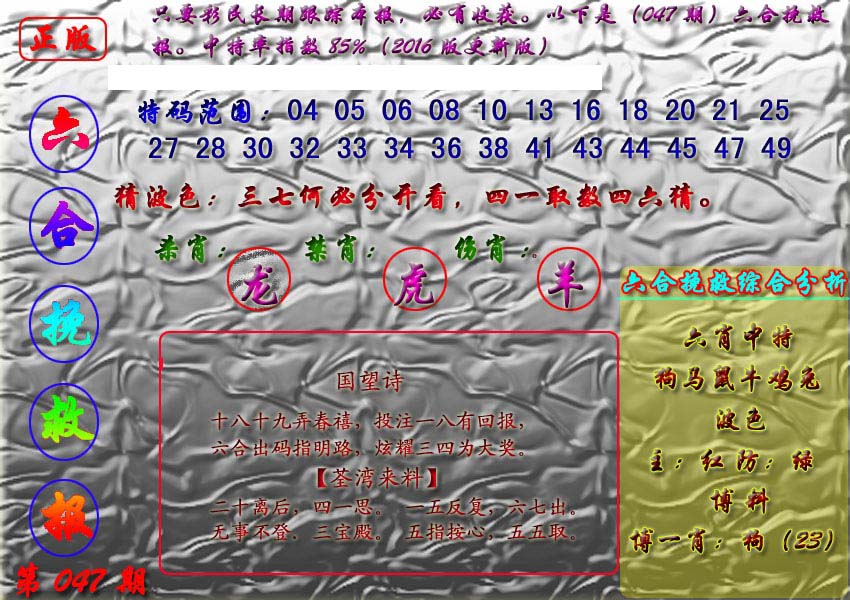 正版
只要彩民长期跟踪本报，必有收获。以下是（047期）六合挽救
报。中特率指数85%（2016版更新版）
六合挽救报
第047期
特码范围：04 05 06 08 10 13 16 18 20 21 25
27 28 30 32 33 34 36 38 41 43 44 45 47 49
猜波色：三七何必分开看，四一取数四六猜。
杀肖：龙 禁肖：虎 伤肖：羊
国望诗
十八十九弄春禧，投注一八有回报，
六合出码指明路，炫耀三四为大奖。
【荃湾来料】
二十离后，四一思。一五反复，六七出。
无事不登．三宝殿。五指按心，五五取。
六合挽救综合分析
六肖中特
狗马鼠牛鸡兔
波色
主：红防：绿
博料
博一肖：狗（23）